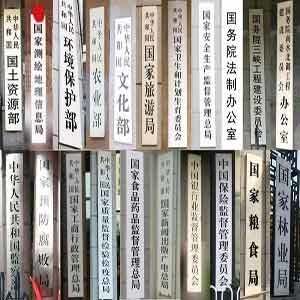 中华人民共和国
国土资源部
国家测绘地理信息局
中华人民共和国
环境保护部
中华人民共和国
农业部
中华人民共和国
文化部
国家旅游局
中华人民共和国
国家卫生和计划生育委员会
国家安全生产监督管理总局
国务院法制办公室
国务院三峡工程建设委员会
国务院南水北调工程建设委员会办公室
中华人民共和国
国家预防腐败局
中华人民共和国
国家工商行政管理总局
中华人民共和国
国家质量监督检验检疫总局
国家食品药品监督管理总局
国家新闻出版广电总局
中国银行业监督管理委员会
中国保险监督管理委员会
国家粮食局
国家林业局